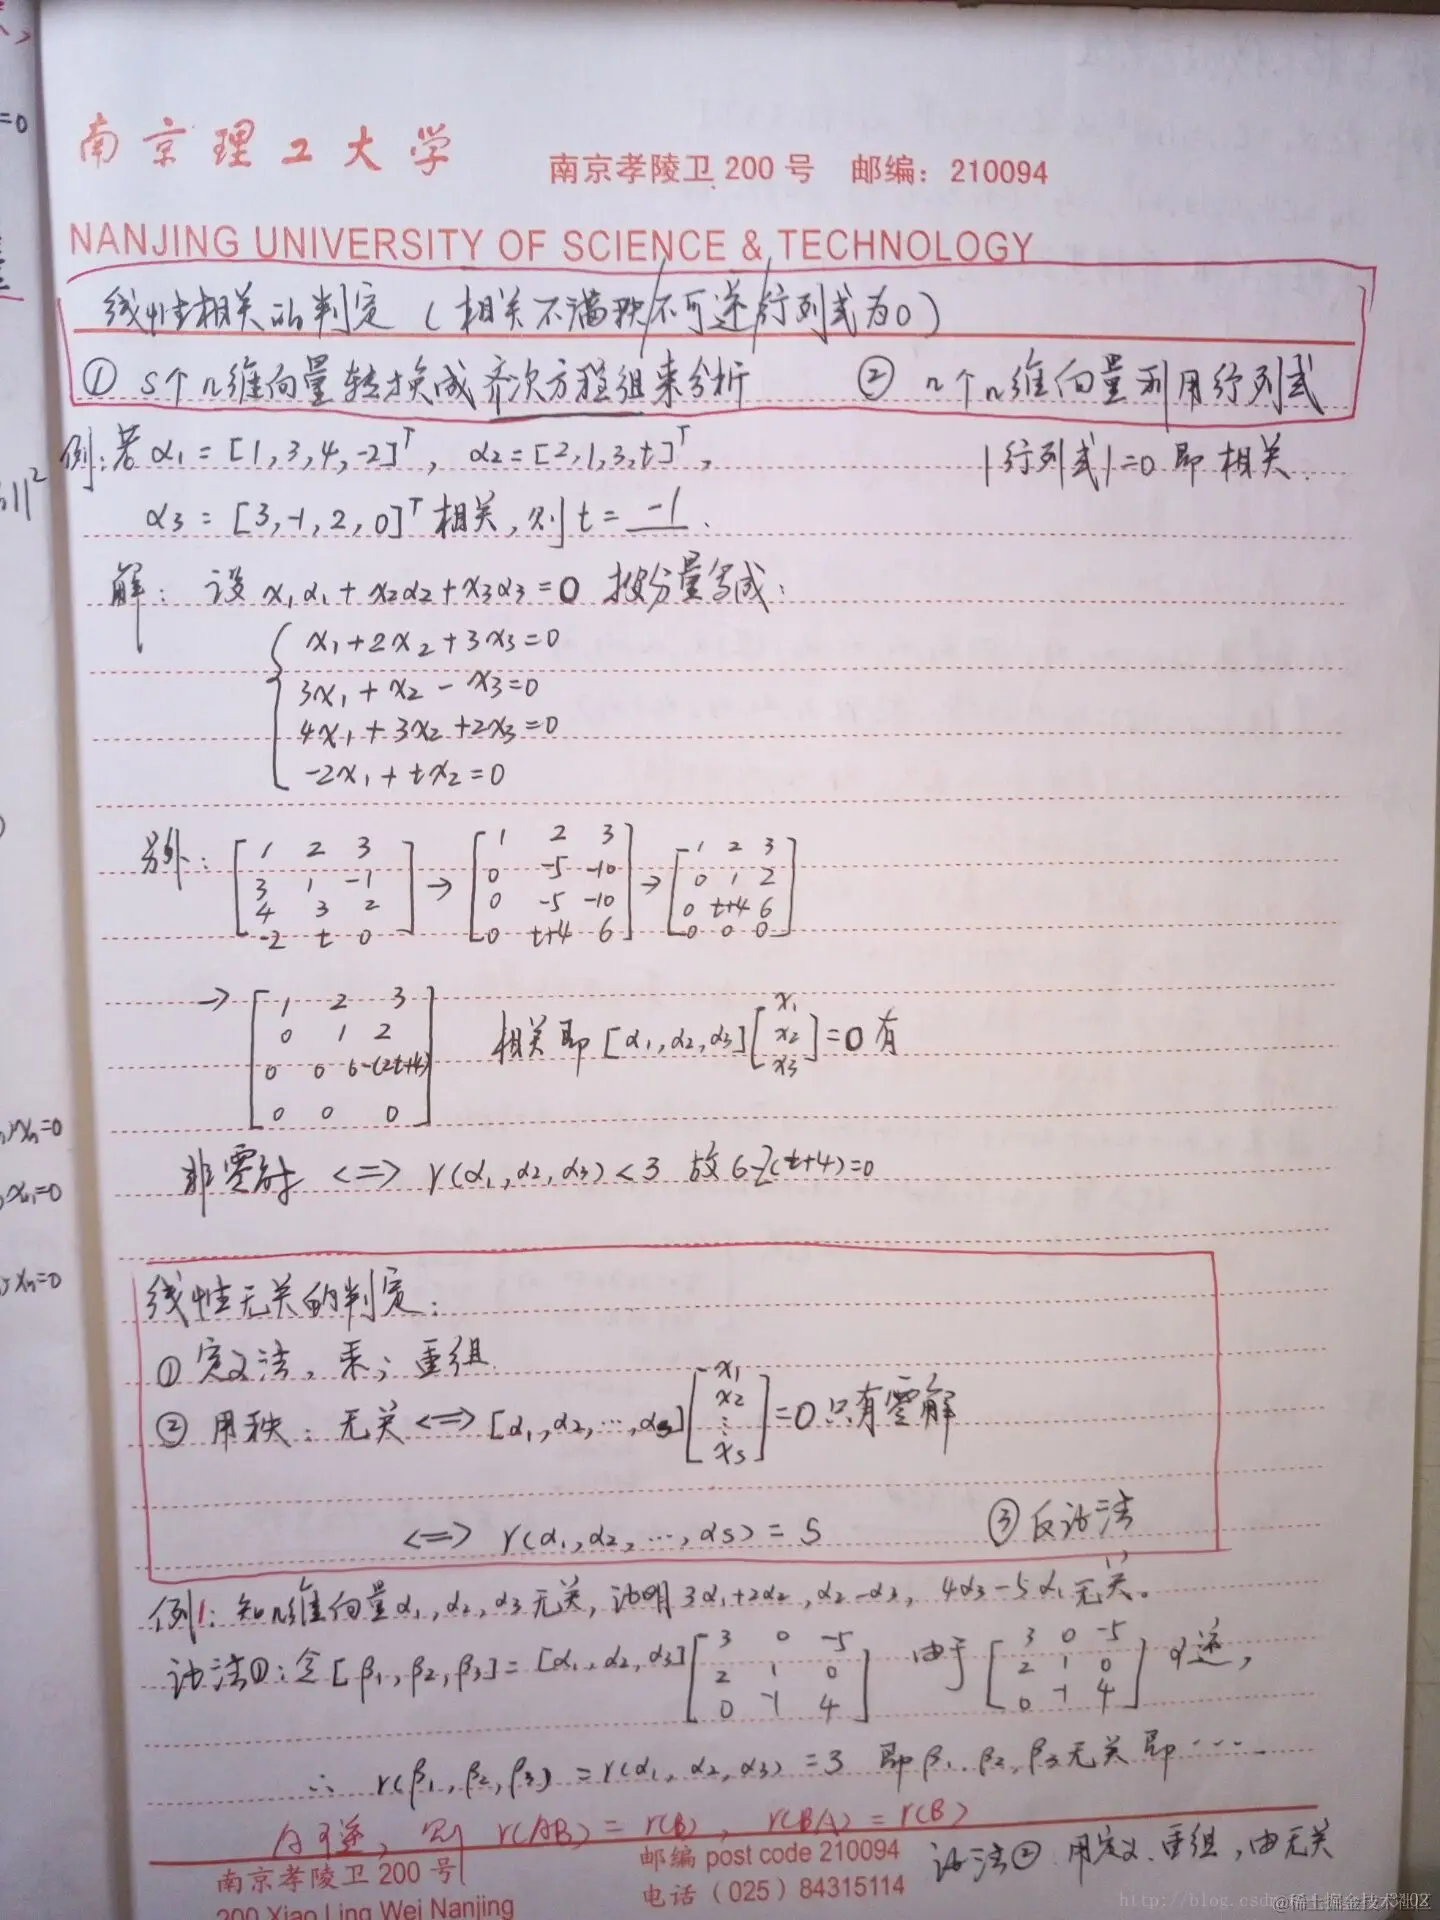 南京理工大学
南京孝陵卫 200 号 邮编：210094
NANJING UNIVERSITY OF SCIENCE & TECHNOLOGY
线性相关的判定（相关不满秩/不可逆/行列式为0）
① s个n维向量转换成齐次方程组来分析 ② n个n维向量利用行列式
|行列式|=0 即相关.
例:若 α1=[1,3,4,-2]ᵀ, α2=[2,1,3,t]ᵀ,
α3=[3,-1,2,0]ᵀ相关,则t=-1.
解: 设 x1α1+x2α2+x3α3=0 按分量写成:
x1+2x2+3x3=0
3x1+x2-x3=0
4x1+3x2+2x3=0
-2x1+tx2=0
另外: [1 2 3; 3 1 -1; 4 3 2; -2 t 0] → [1 2 3; 0 -5 -10; 0 -5 -10; 0 t+4 6] → [1 2 3; 0 1 2; 0 t+4 6; 0 0 0]
→ [1 2 3; 0 1 2; 0 0 6-(2t+4); 0 0 0] 相关即 [α1,α2,α3][x1; x2; x3]=0有
非零解 <=> r(α1,α2,α3)<3 故6-2(t+4)=0
线性无关的判定:
① 定义法,乘;重组.
② 用秩: 无关 <=> [α1,α2,…,αs][x1; x2; ⋮; xs]=0只有零解
<=> r(α1,α2,…,αs)=s ③反证法
例1:知n维向量α1,α2,α3无关,证明3α1+2α2,α2-α3,4α3-5α1无关。
证法①:令[β1,β2,β3]=[α1,α2,α3][3 0 -5; 2 1 0; 0 -1 4] 由于 [3 0 -5; 2 1 0; 0 -1 4] 可逆,
∴ r(β1,β2,β3)=r(α1,α2,α3)=3 即β1.β2,β3无关即……
A可逆, 则 r(AB)=r(B), r(BA)=r(B)
证法② 用定义.重组,由无关
南京孝陵卫 200 号
200 Xiao Ling Wei Nanjing
邮编 post code 210094
电话（025）84315114
=0
x1=0
@稀土掘金技术社区